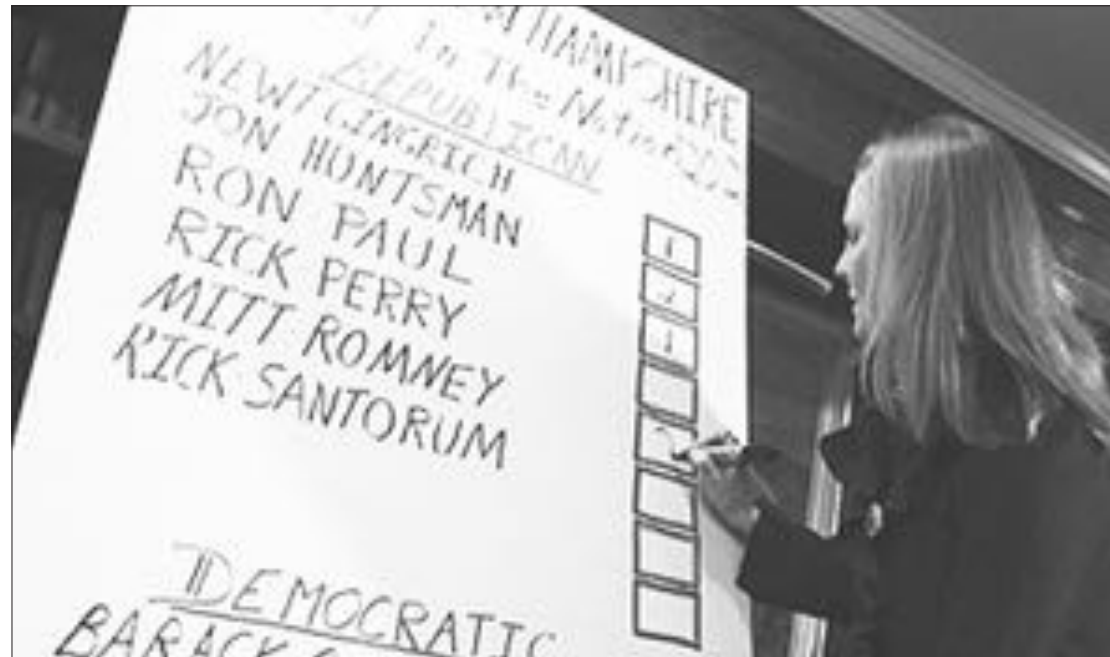 HAMPSHIRE
In The Nation
REPUBLICAN
NEWT GINGRICH
JON HUNTSMAN
RON PAUL
RICK PERRY
MITT ROMNEY
RICK SANTORUM
1
2
1
2
DEMOCRATIC
BARACK